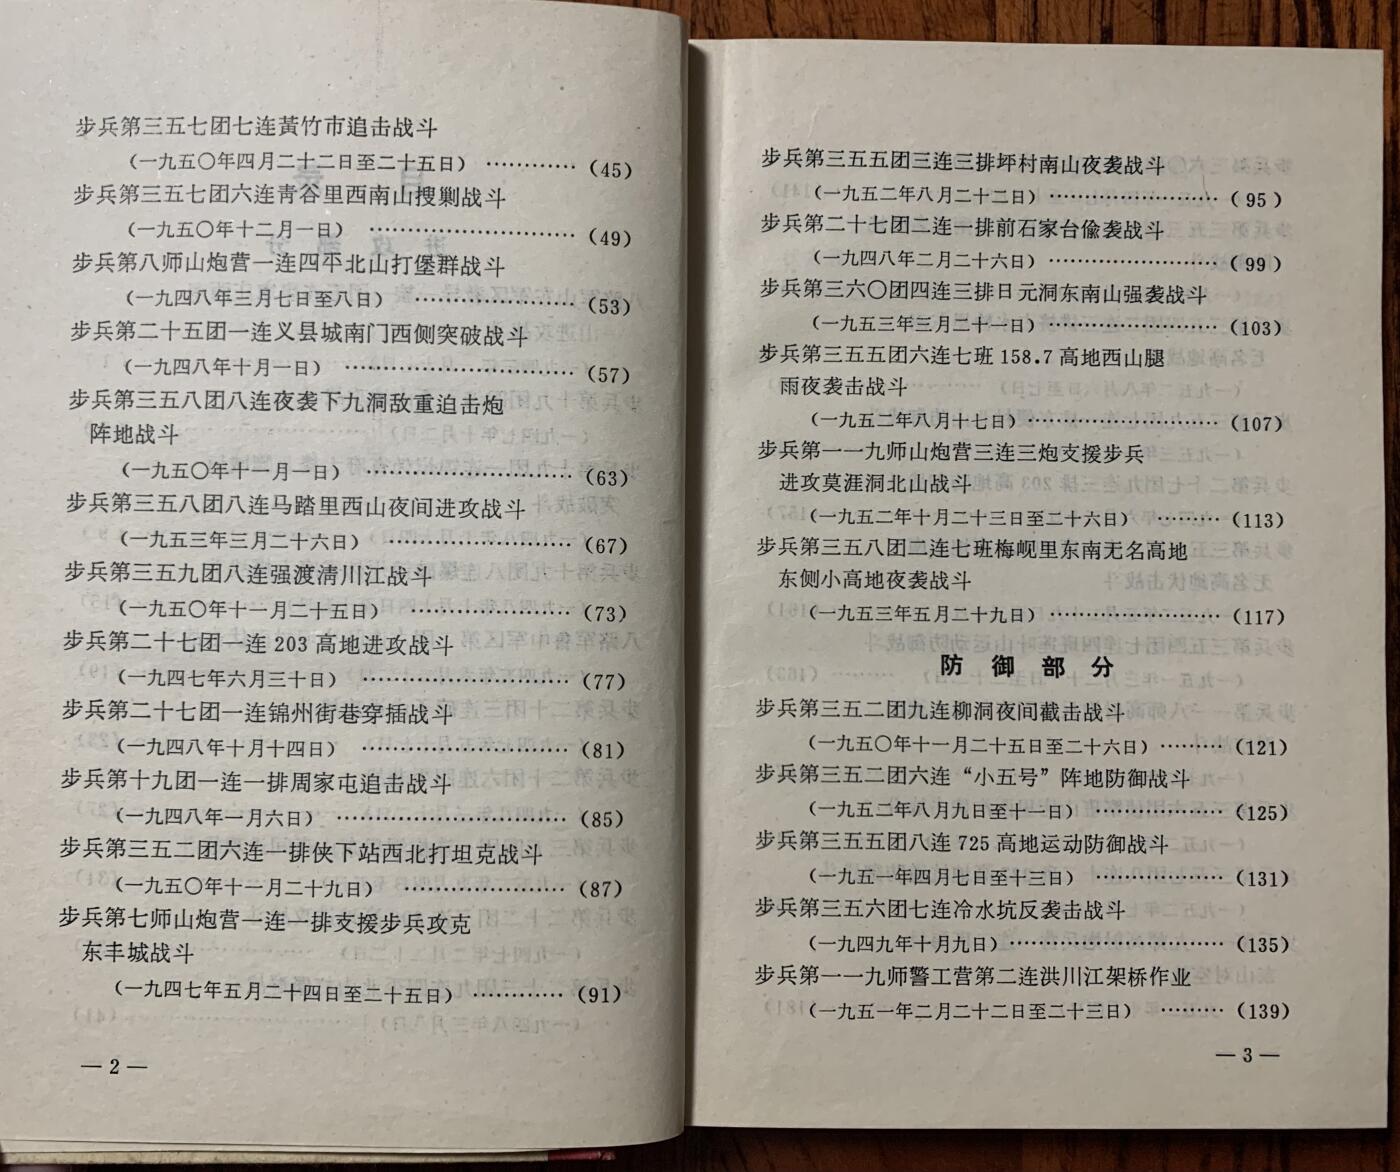 步兵第三五七团七连黄竹市追击战斗
(一九五〇年四月二十二日至二十五日) ………… (45)
步兵第三五七团六连青谷里西南山搜剿战斗
(一九五〇年十二月一日) ……………………… (49)
步兵第八师山炮营一连四平北山打堡群战斗
(一九四八年三月七日至八日) ………………… (53)
步兵第二十五团一连义县城南门西侧突破战斗
(一九四八年十月一日) ………………………… (57)
步兵第三五八团八连夜袭下九洞敌重迫击炮
阵地战斗
(一九五〇年十一月一日) ……………………… (63)
步兵第三五八团八连马踏里西山夜间进攻战斗
(一九五三年三月二十六日) …………………… (67)
步兵第三五九团八连强渡清川江战斗
(一九五〇年十一月二十五日) ………………… (73)
步兵第二十七团一连203高地进攻战斗
(一九四七年六月三十日) ……………………… (77)
步兵第二十七团一连锦州街巷穿插战斗
(一九四八年十月十四日) ……………………… (81)
步兵第十九团一连一排周家屯追击战斗
(一九四八年一月六日) ………………………… (85)
步兵第三五二团六连一排侠下站西北打坦克战斗
(一九五〇年十一月二十九日) ………………… (87)
步兵第七师山炮营一连一排支援步兵攻克
东丰城战斗
(一九四七年五月二十四日至二十五日) ………… (91)
— 2 —
步兵第三五五团三连三排坪村南山夜袭战斗
(一九五二年八月二十二日) …………………… (95)
步兵第二十七团二连一排前石家台偷袭战斗
(一九四八年二月二十六日) …………………… (99)
步兵第三六〇团四连三排日元洞东南山强袭战斗
(一九五三年三月二十一日) …………………… (103)
步兵第三五五团六连七班158.7高地西山腿
雨夜袭击战斗
(一九五二年八月十七日) ……………………… (107)
步兵第一一九师山炮营三连三炮支援步兵
进攻莫涯洞北山战斗
(一九五二年十月二十三日至二十六日) ……… (113)
步兵第三五八团二连七班梅岘里东南无名高地
东侧小高地夜袭战斗
(一九五三年五月二十九日) …………………… (117)
防御部分
步兵第三五二团九连柳洞夜间截击战斗
(一九五〇年十一月二十五日至二十六日) ……… (121)
步兵第三五二团六连“小五号”阵地防御战斗
(一九五二年八月九日至十一日) ……………… (125)
步兵第三五五团八连725高地运动防御战斗
(一九五一年四月七日至十三日) ……………… (131)
步兵第三五六团七连冷水坑反袭击战斗
(一九四九年十月九日) ………………………… (135)
步兵第一一九师警工营第二连洪川江架桥作业
(一九五一年二月二十二日至二十三日) ……… (139)
— 3 —